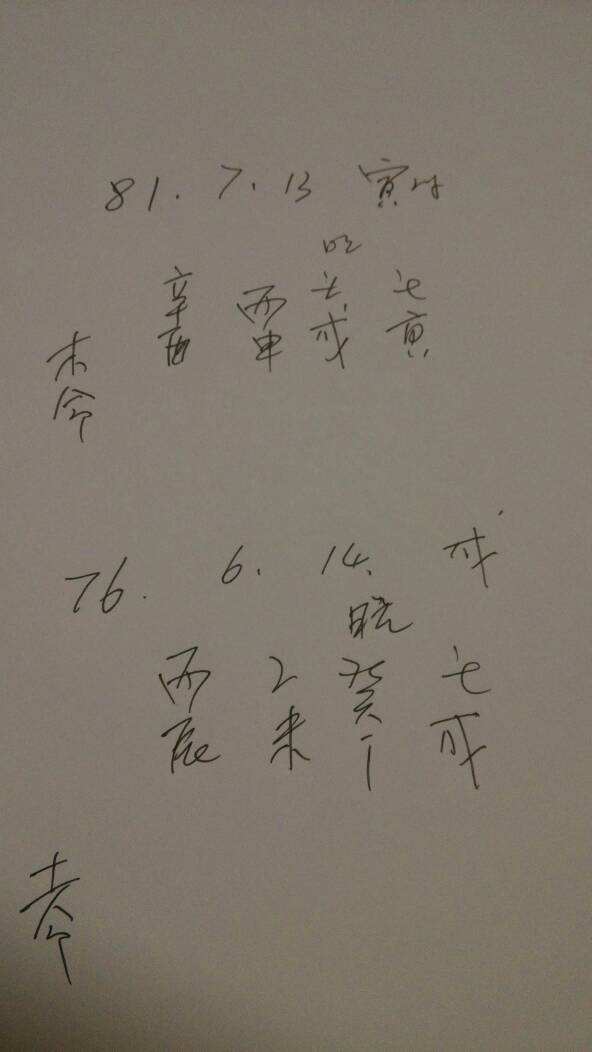 81. 7. 13 寅时
辛 丙 壬 壬
酉 申 戌 寅
木命
76. 6. 14. 戌
丙 乙 癸 壬
辰 未 戌
土命